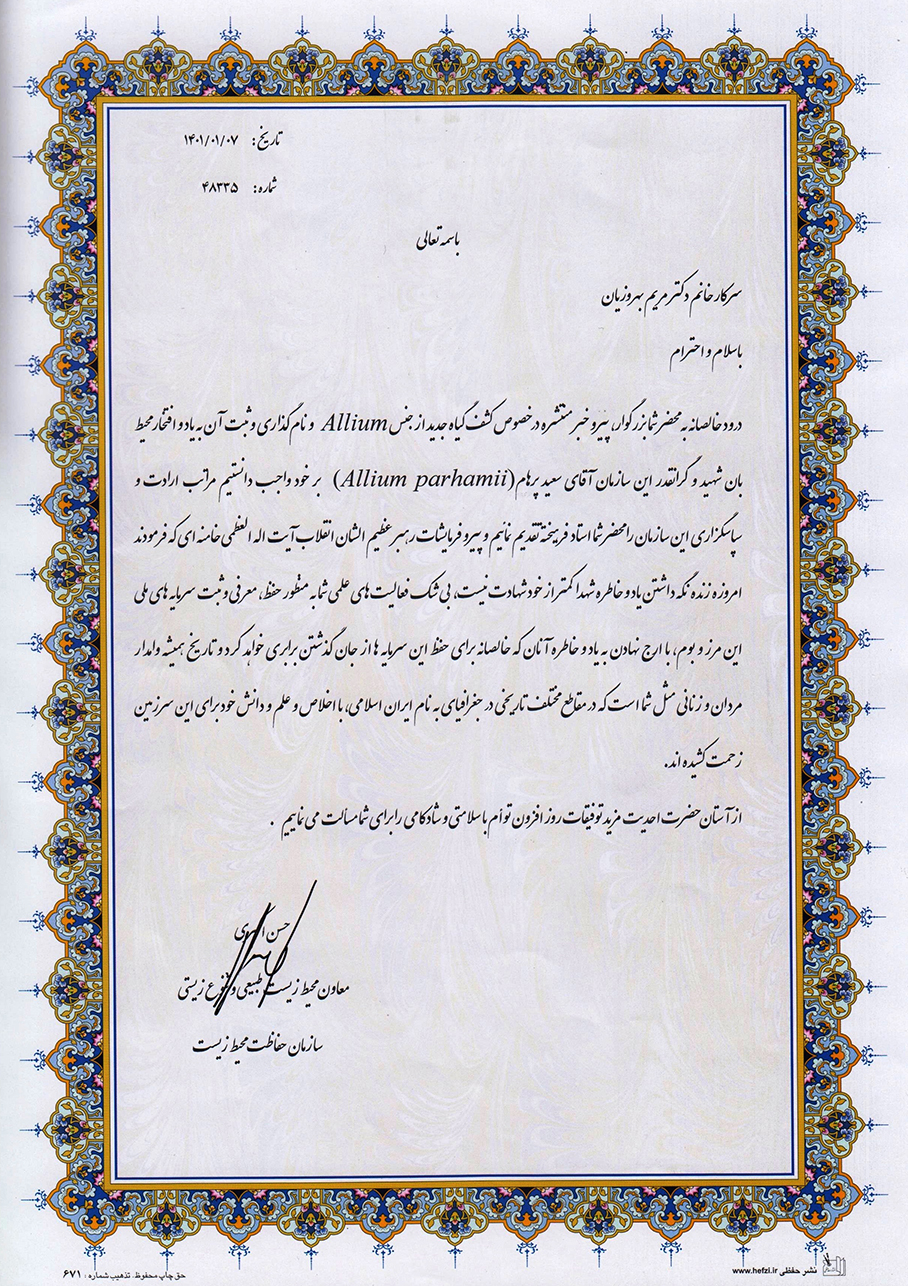 تاریخ: ۱۴۰۱/۰۱/۰۷
شماره: ۴۸۳۳۵
باسمه تعالی
سرکار خانم دکتر مریم بهروزیان
با سلام و احترام
درود خالصانه به محضر شما بزرگوار، پیرو خبر منتشره در خصوص کشف گیاه جدید از جنس Allium و نام گذاری و ثبت آن به یاد و افتخار محیط
بان شهید و گرانقدر این سازمان آقای سعید پرهام (Allium parhamii) بر خود واجب دانستیم مراتب ارادت و
سپاسگزاری این سازمان را محضر شما استاد فرهیخته تقدیم نمائیم و پیرو فرمایشات رهبر عظیم الشان انقلاب آیت اله العظمی خامنه ای که فرمودند
امروزه زنده نگه داشتن یاد و خاطره شهدا کمتر از خود شهادت نیست، بی شک فعالیت های علمی شما به منظور حفظ، معرفی و ثبت سرمایه های ملی
این مرز و بوم، با ارج نهادن به یاد و خاطره آنان که خالصانه برای حفظ این سرمایه ها از جان گذشتن برابری خواهد کرد و تاریخ همیشه وامدار
مردان و زنانی مثل شما است که در مقاطع مختلف تاریخی در جغرافیای به نام ایران اسلامی، با اخلاص و علم و دانش خود برای این سرزمین
زحمت کشیده اند.
از آستان حضرت احدیت مزید توفیقات روز افزون توأم با سلامتی و شادکامی را برای شما مسالت می نماییم .
حسن
معاون محیط زیست طبیعی و تنوع زیستی
سازمان حفاظت محیط زیست
نشر حفظی www.hefzi.ir
حق چاپ محفوظ. تذهیب شماره: ۶۷۱